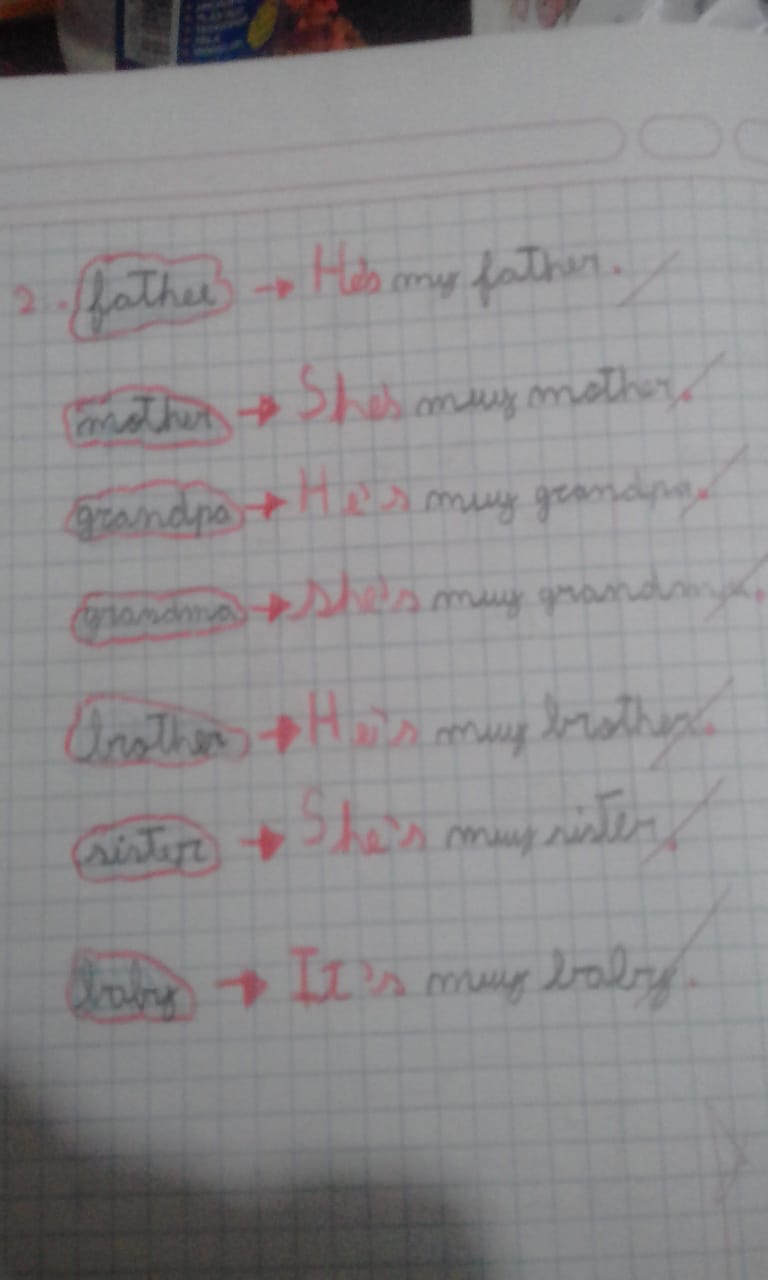 2. father → He's my father.
mother → She's muy mother.
grandpa → He's muy grandpa.
grandma → she's muy grandma.
brother → He's muy brother.
sister → She's muy sister.
baby → It's muy baby.